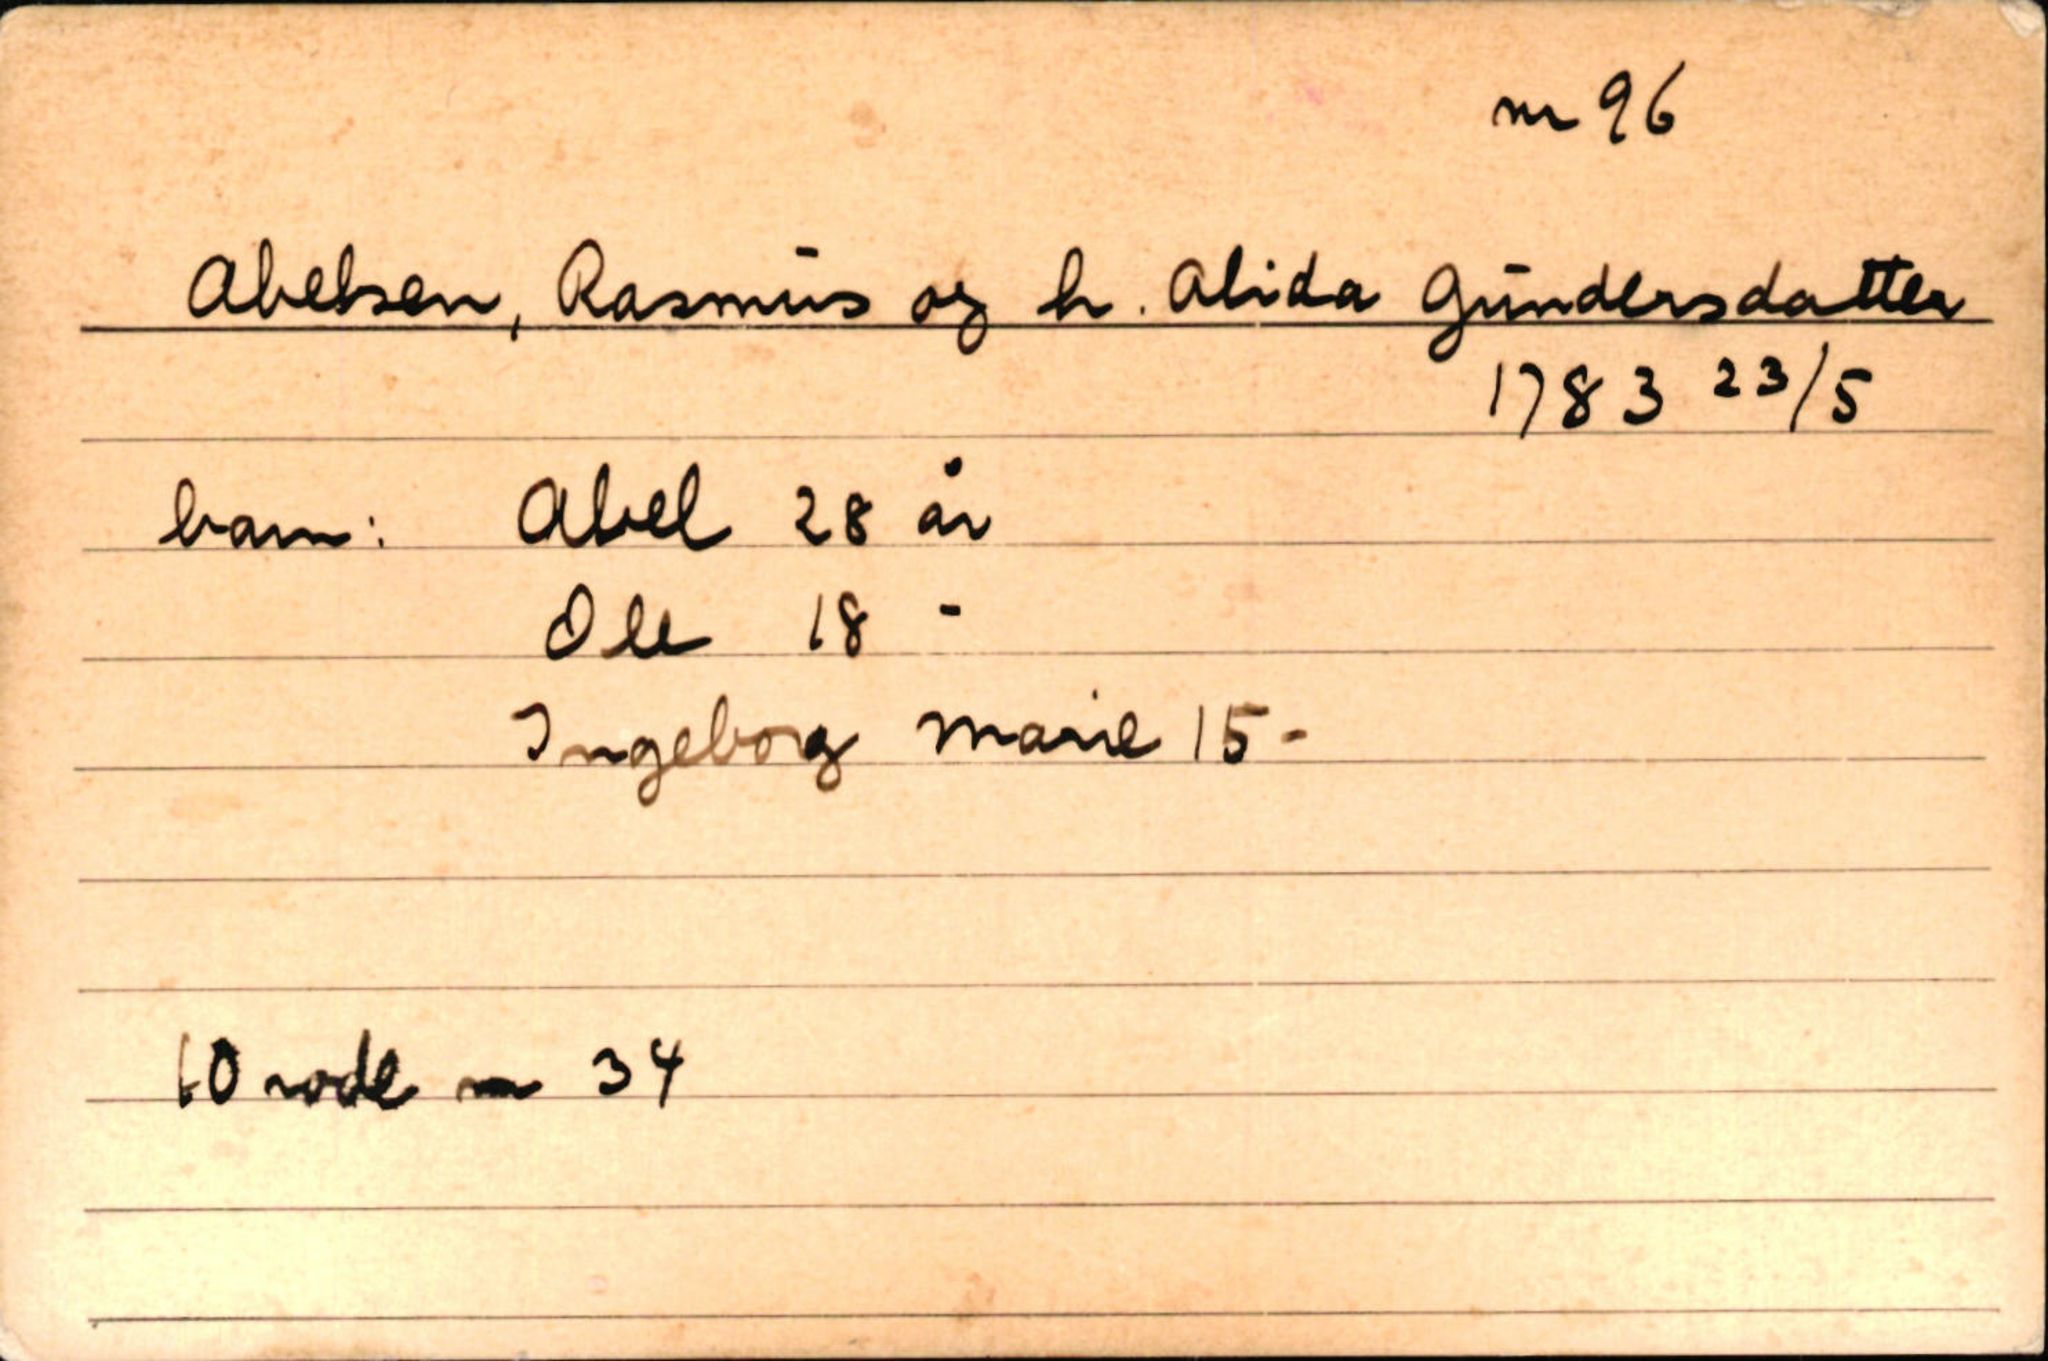 nr 96
Abelsen, Rasmus og h. Alida Gundersdatter
1783 23/5
barn: Abel 28 år
Ole 18 -
Ingeborg Marie 15 -
10 rode nr 34